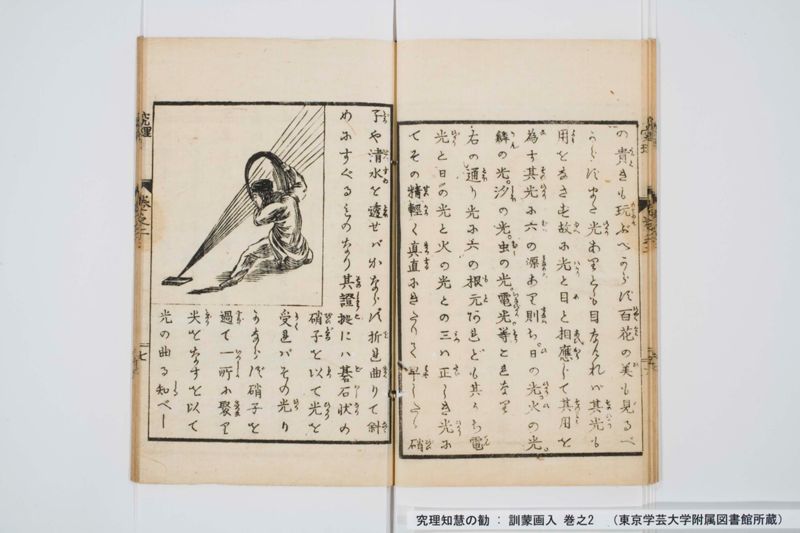 の貴きも玩ぶべからず百花の美も見るべ
からずまた光ありとも目なけれバ其光も
用をなさず故に光と目と相應じて其用を
為す其光に六の源あり則ち。日の光。火の光。
の光。汐の光。虫の光。電光等と色なり
右の通り光に六の根元あれども其うち電
光と日の光と火の光との三ハ正しき光に
てその精軽く真直にきたり 早し 硝
子や清水を透せバかならず折れ曲りて斜
めにすぐるものなり其證拠にハ碁石状の
硝子を以て光を
受れバその光り
かならず硝子を
過て一所に聚り
尖をなすを以て
光の曲る知べし
究理
巻之二
七
究理知慧の勧 : 訓蒙画入 巻之2 (東京学芸大学附属図書館所蔵)